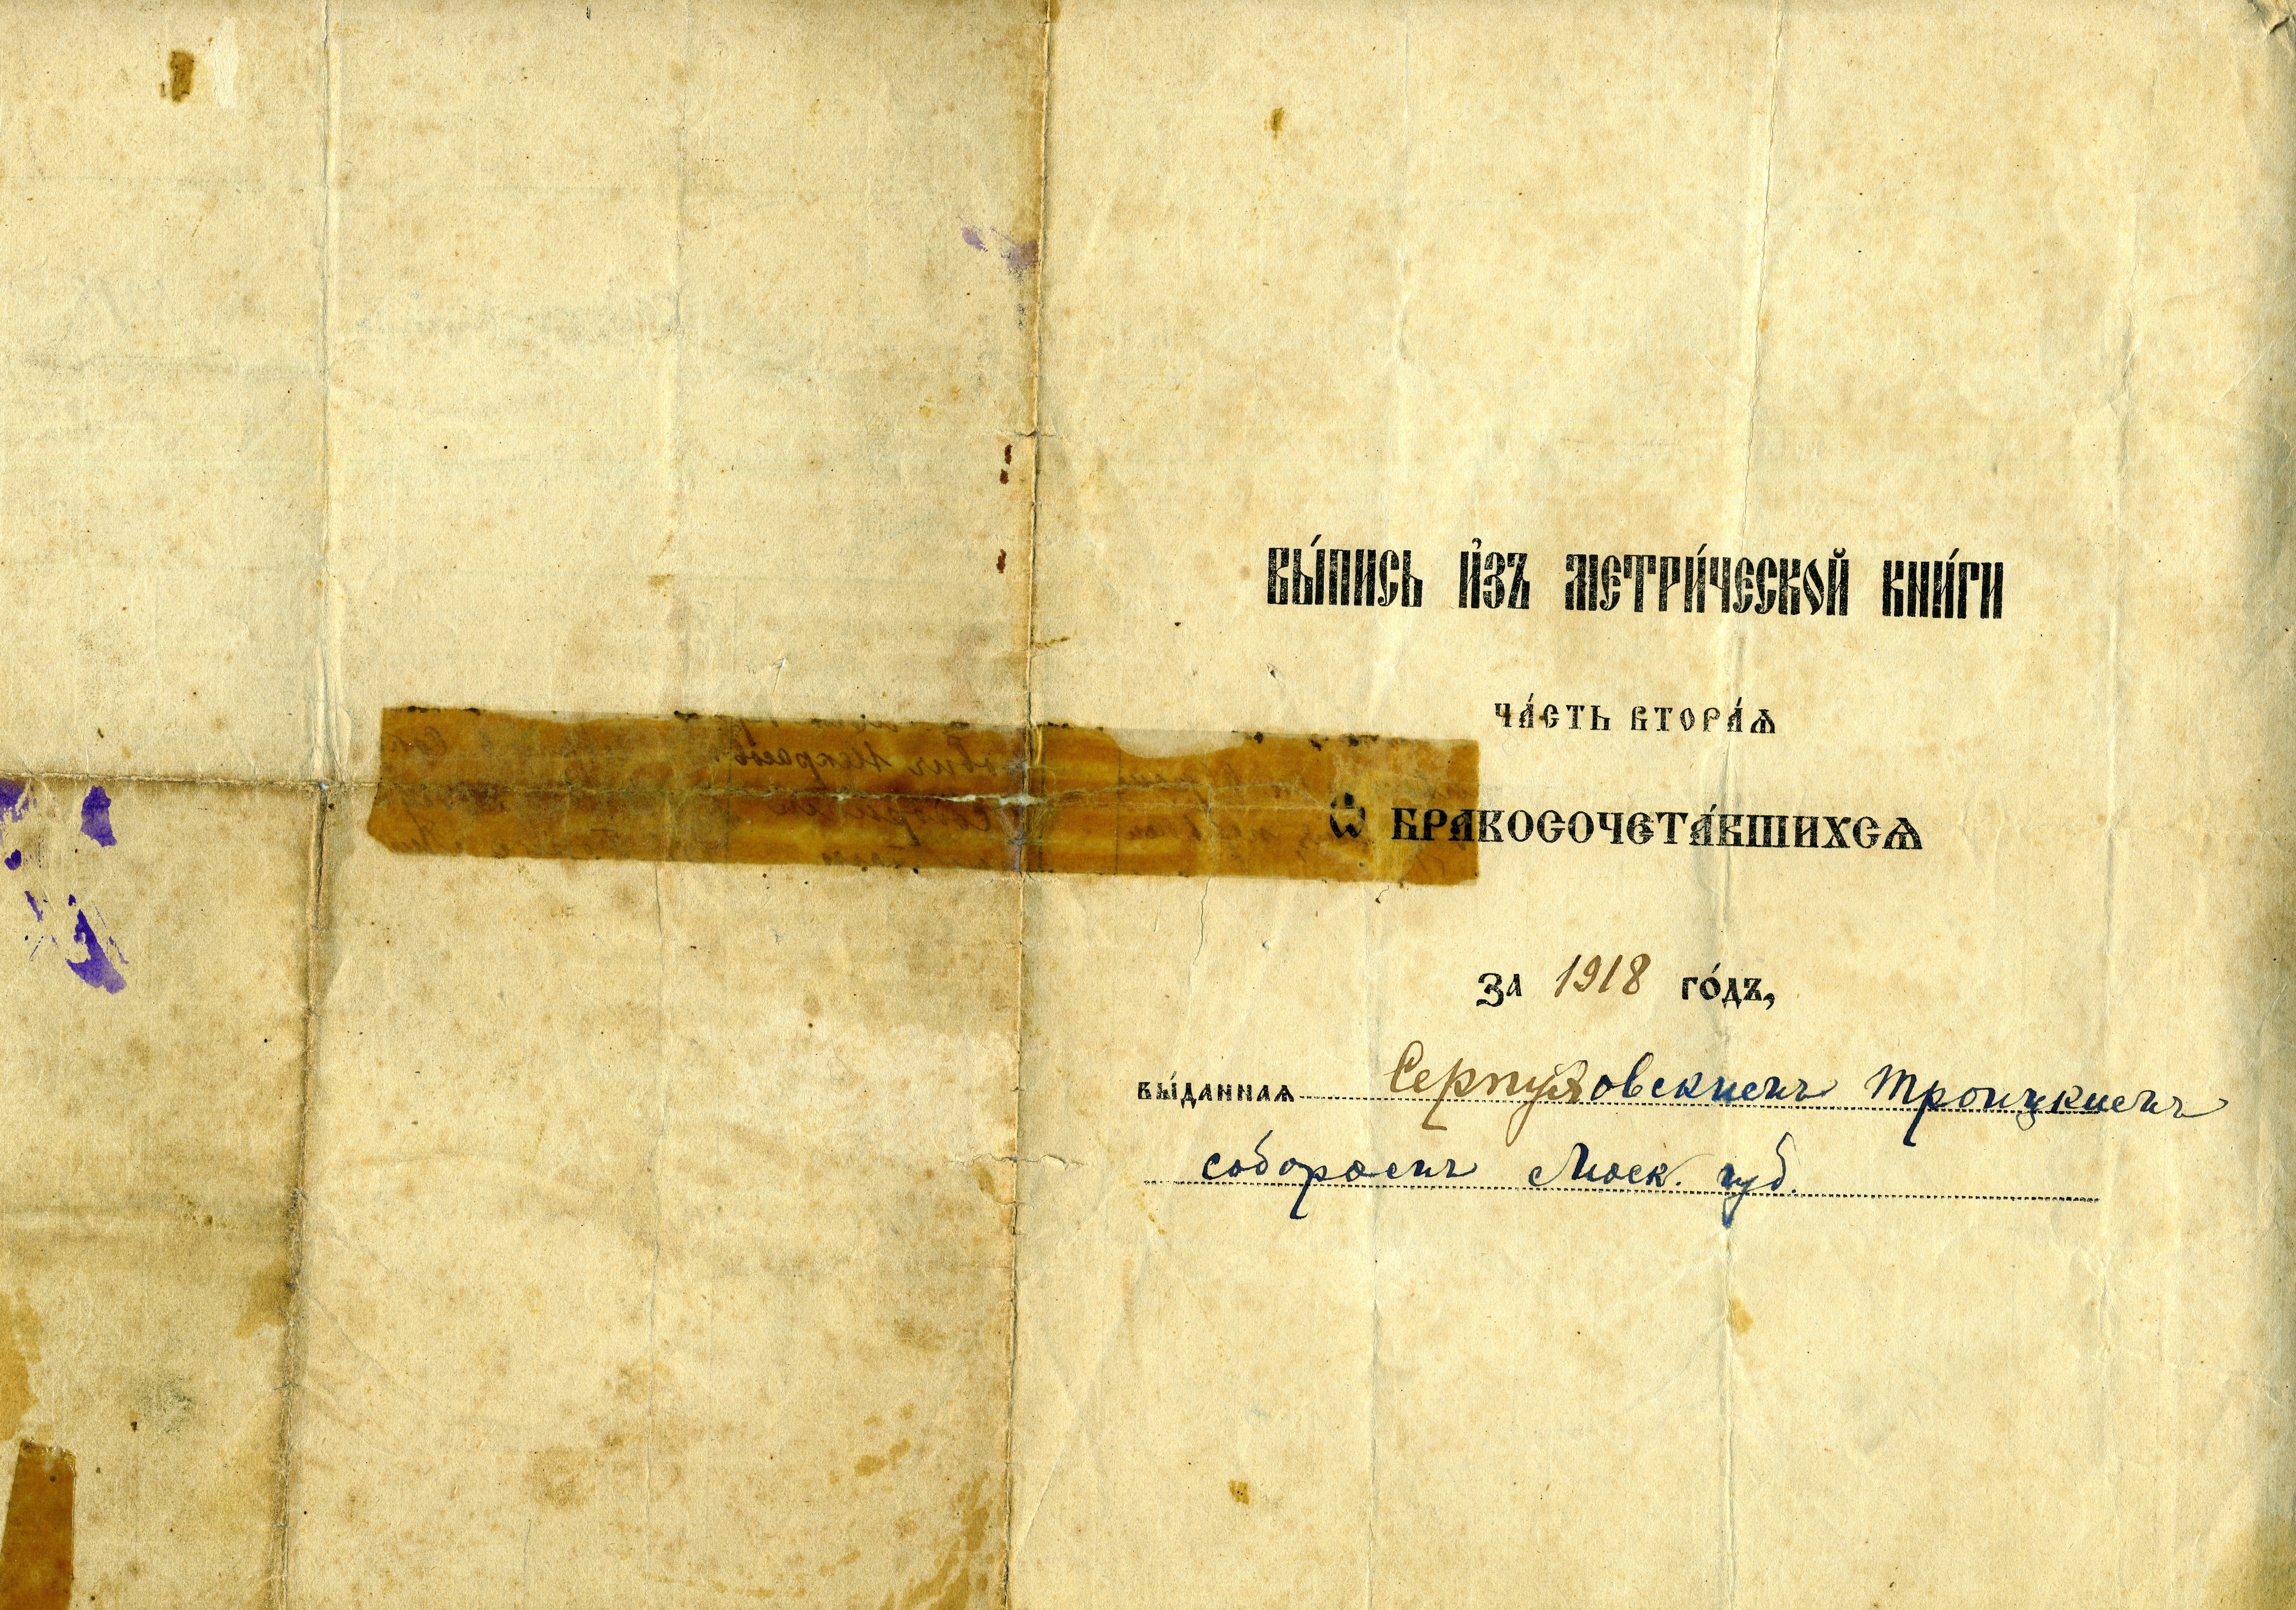 ВЫ́ПИСЬ И҆ЗЪ МЕТРИ́ЧЕСКОЙ КНИ́ГИ
ЧА́СТЬ ВТОРА́Ѧ
Ѽ БРАКОСОЧЕТА́ВШИХСѦ
ЗА 1918 ГО́ДЪ,
ВЫ́ДАННАѦ Серпуховскимъ Троицкимъ
соборомъ Моск. губ.